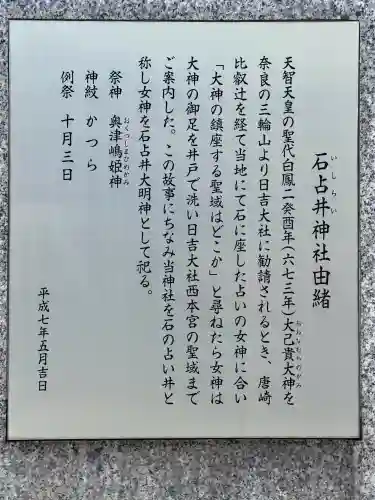 石占井神社由緒
いしらい
天智天皇の聖代白鳳二癸酉年(六七三年)大己貴大神を
おおなむちのおおかみ
奈良の三輪山より日吉大社に勧請されるとき、唐崎
比叡辻を経て当地にて石に座した占いの女神に合い
「大神の鎮座する聖域はどこか」と尋ねたら女神は
大神の御足を井戸で洗い日吉大社西本宮の聖域まで
ご案内した。この故事にちなみ当神社を石の占い井と
称し女神を石占井大明神として祀る。
祭神 奥津嶋姫神
おくつしまひめのかみ
神紋 かつら
例祭 十月三日
平成七年五月吉日